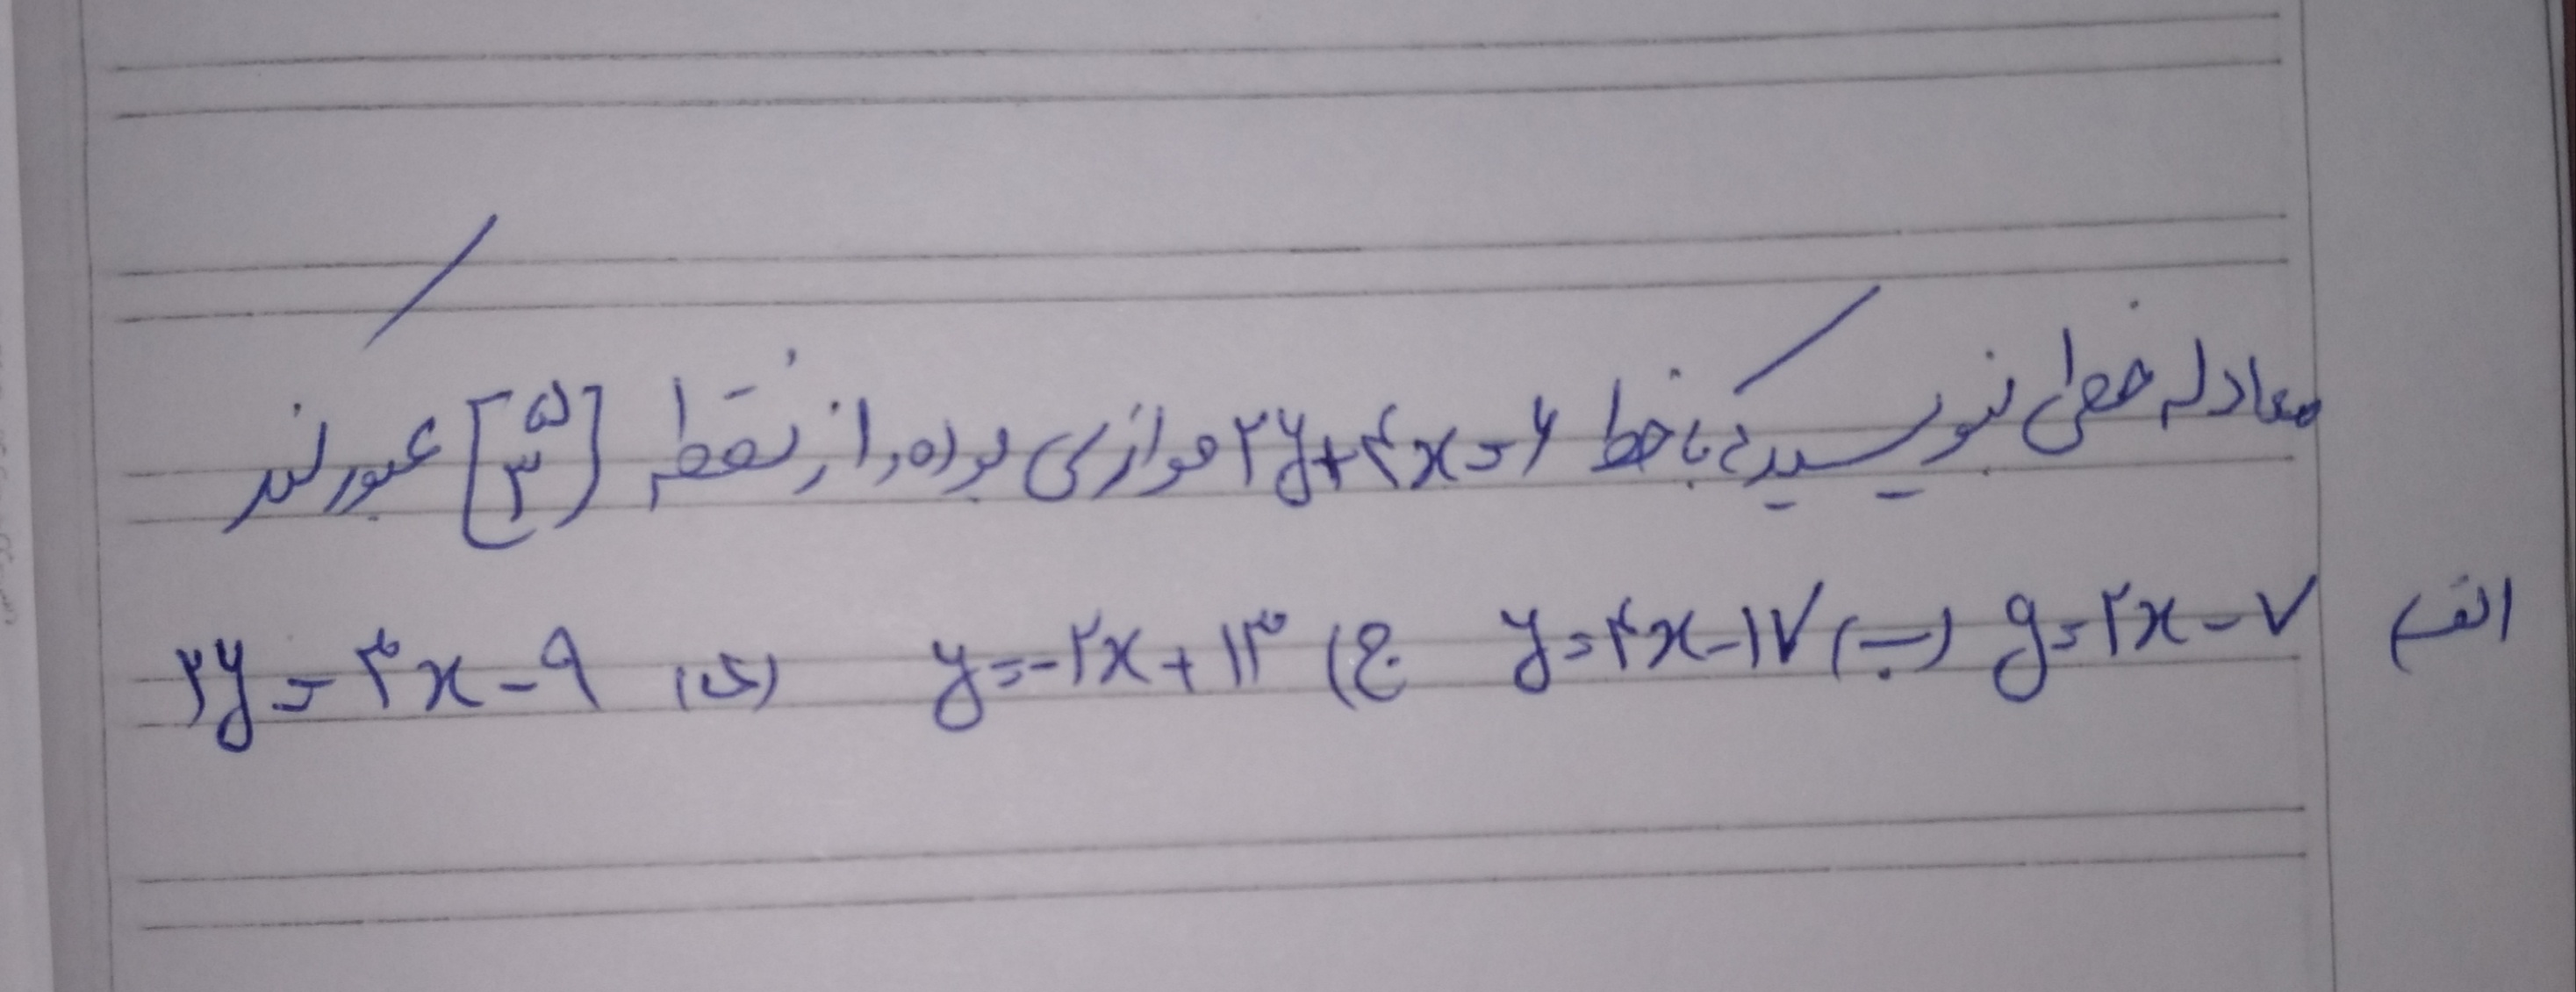 معادله خطی بنویسید که با خط ۲y+۴x=۶ موازی بوده و از نقطه [۵ ۳] عبور کند
الف) y=۲x-۷ ب) y=۴x-۱۷ ج) y=-۲x+۱۳ د) ۲y=۳x-۹